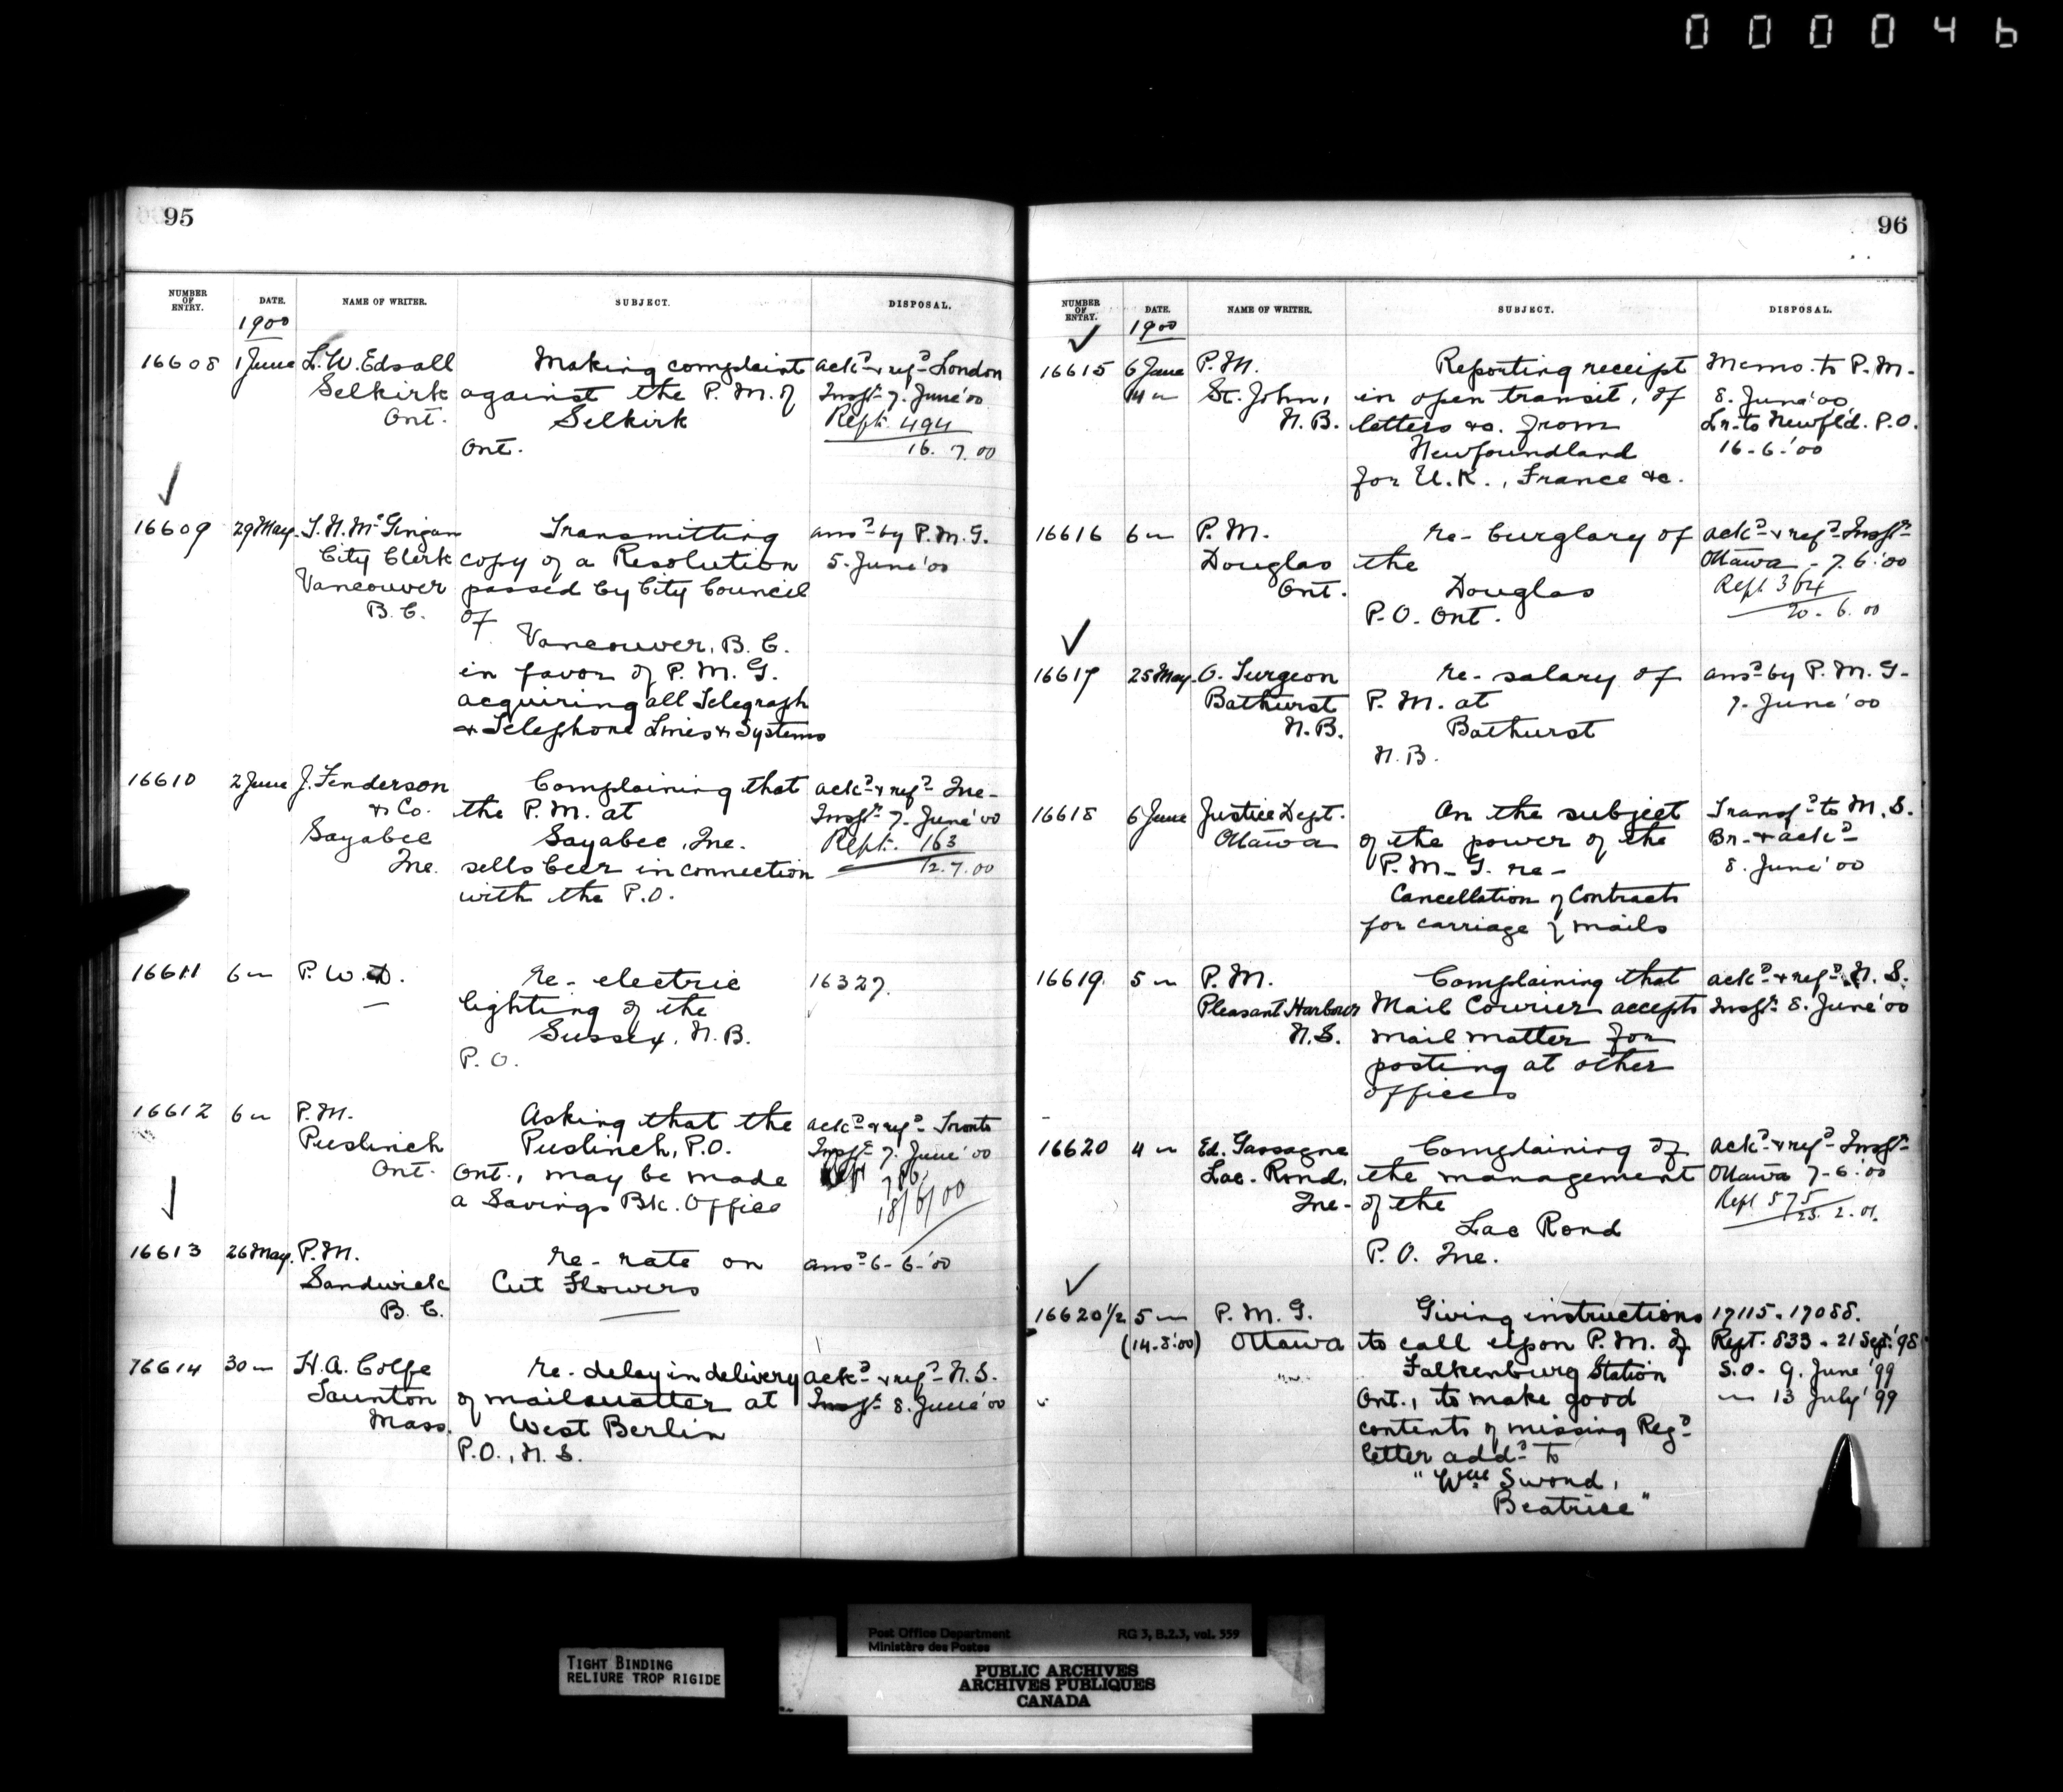 000046
95
NUMBER OF ENTRY. DATE. NAME OF WRITER. SUBJECT. DISPOSAL.
1900
16608 1 June L. W. Edsall Making complaint ackd & refd London
Selkirk against the P. M. of Inspr 7. June '00
Ont. Selkirk Rept. 494
Ont. 16. 7. 00
16609 29 May. City Clerk Transmitting ansd by P. M. G.
Vancouver copy of a Resolution 5. June '00
B. C. passed by City Council
of
Vancouver, B. C.
in favor of P. M. G.
acquiring all Telegraph
& Telephone Lines & Systems
16610 2 June J. Fenderson Complaining that ackd & refd Que-
& Co. the P. M. at Inspr 7. June '00
Sayabec Sayabec, Que. Rept. 163
Que. sells beer in connection 12.7.00
with the P.O.
16611 6 " P. W. D. re- electric 16327.
lighting of the
Sussex, N. B.
P. O.
16612 6 " P. M. Asking that the ackd & refd Toronto
Puslinch Puslinch, P.O. Inspr 7. June '00
Ont. Ont., may be made
a Savings Bk. Office 18/6/00
16613 26 May. P. M. re- rate on ansd 6-6-'00
Sandwick Cut Flowers
B. C.
16614 30 " H. A. Colpe re- delay in delivery ackd & refd N. S.
Taunton of mail matter at Inspr 8. June '00
Mass. West Berlin
P.O., N. S.
96
NUMBER OF ENTRY. DATE. NAME OF WRITER. SUBJECT. DISPOSAL.
1900
16615 6 June P. M. Reporting receipt Memo. to P. M.
14 " St. John, in open transit, of 8. June '00
N. B. letters &c. from Lr. to Newfld. P.O.
Newfoundland 16-6-'00
for U. K., France &c.
16616 6 " P. M. re- burglary of ackd & refd Inspr
Douglas the Ottawa - 7. 6.'00
Ont. Douglas Rept 364
P.O. Ont. 20. 6. 00
16617 25 May. O. Turgeon re- salary of ansd by P. M. G-
Bathurst P. M. at 7. June '00
N. B. Bathurst
N. B.
16618 6 June Justice Dept. On the subject Transfd to M. S.
Ottawa of the power of the Br. & ackd
P. M. G. re- 8. June '00
Cancellation of Contracts
for carriage of mails
16619 5 " P. M. Complaining that ackd & refd N. S.
Pleasant Harbour Mail Courier accepts Inspr 8. June '00
N. S. mail matter for
posting at other
offices
16620 4 " Ed. Gassagne Complaining of ackd & refd Inspr
Lac. Rond, the management Ottawa 7-6-'00
Que- of the Rept 575
Lac Rond 25. 2. 01.
P. O. Que.
16620 1/2 5 " P. M. G. Giving instructions 17115. 17088.
(14.8.'00) Ottawa to call upon P. M. of Rept. 833 - 21 Sep. '98
Falkenburg Station S. O- 9. June '99
Ont., to make good " 13 July '99
contents of missing Regd
letter addd to
"Wm Swond,
Beatrice"
Post Office Department RG 3, B.2.3, vol. 559
Ministère des Postes
TIGHT BINDING
RELIURE TROP RIGIDE
PUBLIC ARCHIVES
ARCHIVES PUBLIQUES
CANADA